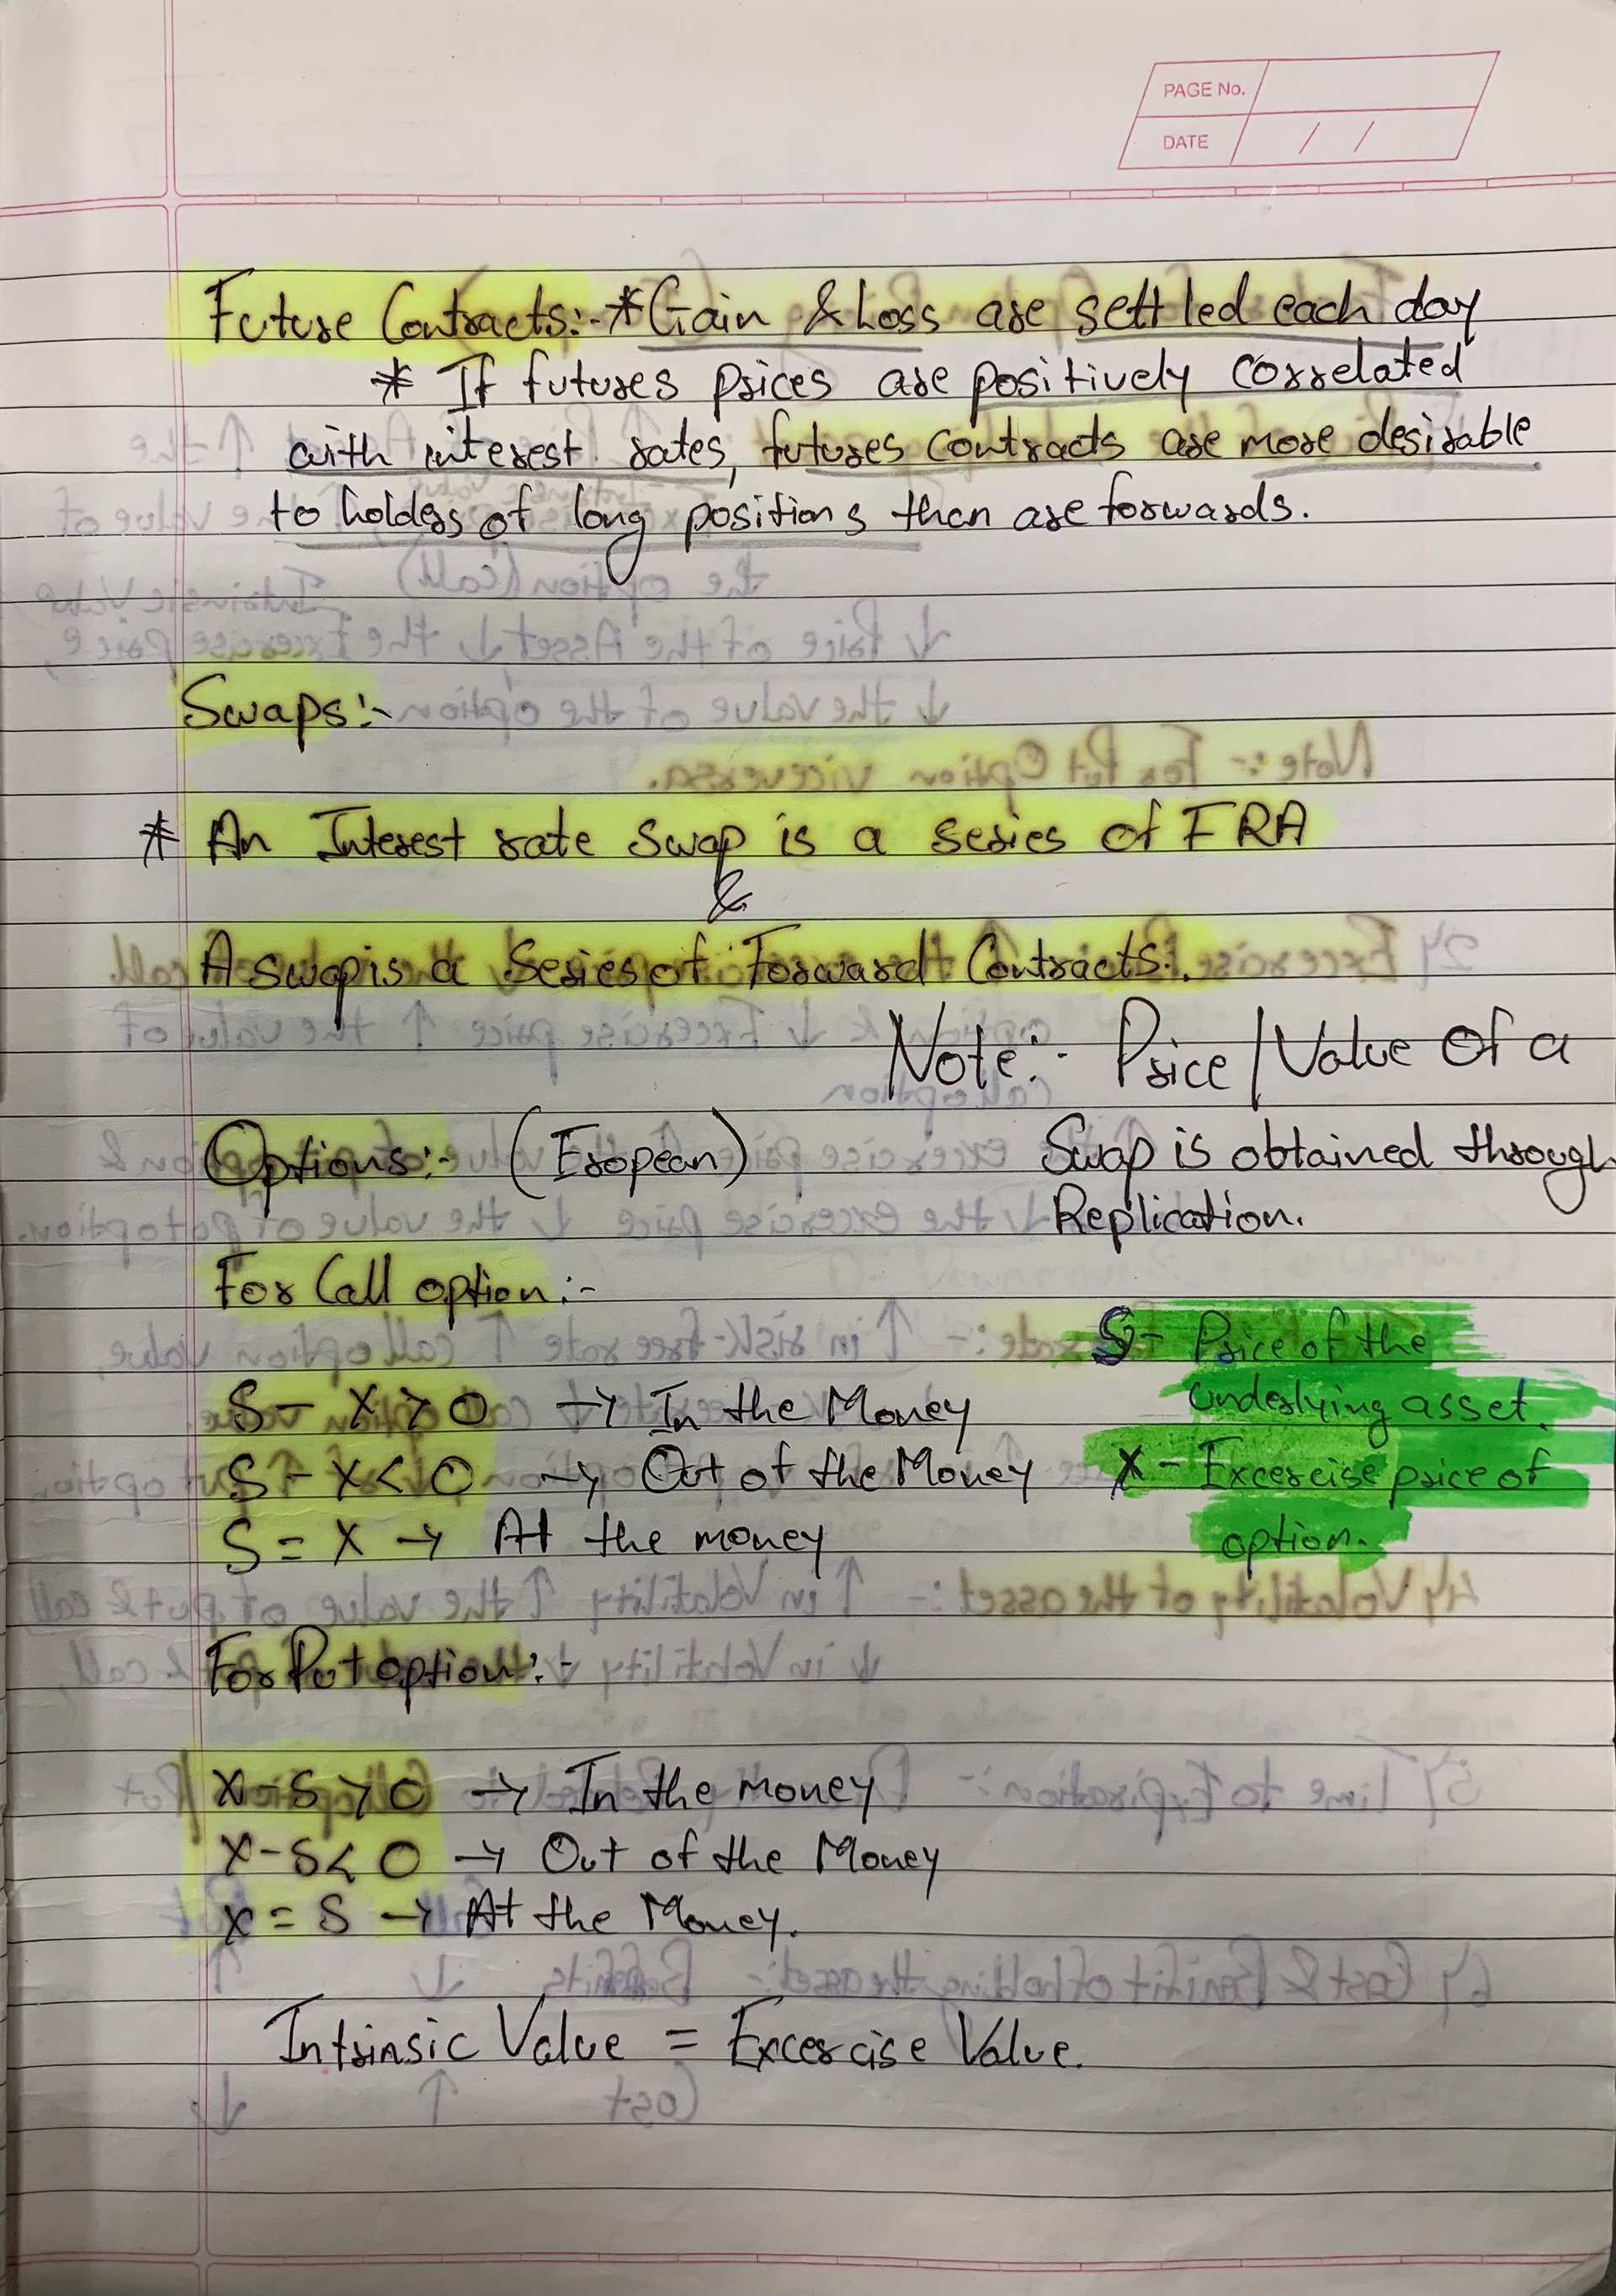 PAGE No.
DATE / /
Future Contracts:- * Gain & Loss are settled each day
* If futures prices are positively correlated
with interest rates, futures contracts are more desirable
to holders of long positions than are forwards.
Swaps:-
* An Interest rate swap is a series of FRA
&
A swap is a Series of Forward Contracts.
Note:- Price/Value of a
Swap is obtained through
Replication.
Options:- (Eropean)
For Call option:-
S - X > 0 → In the Money
S - X < 0 → Out of the Money
S = X → At the money
S - Price of the
underlying asset.
X - Excercise price of
option.
For Put option:-
X - S > 0 → In the money
X - S < 0 → Out of the Money
X = S → At the Money.
Intrinsic Value = Excercise Value.